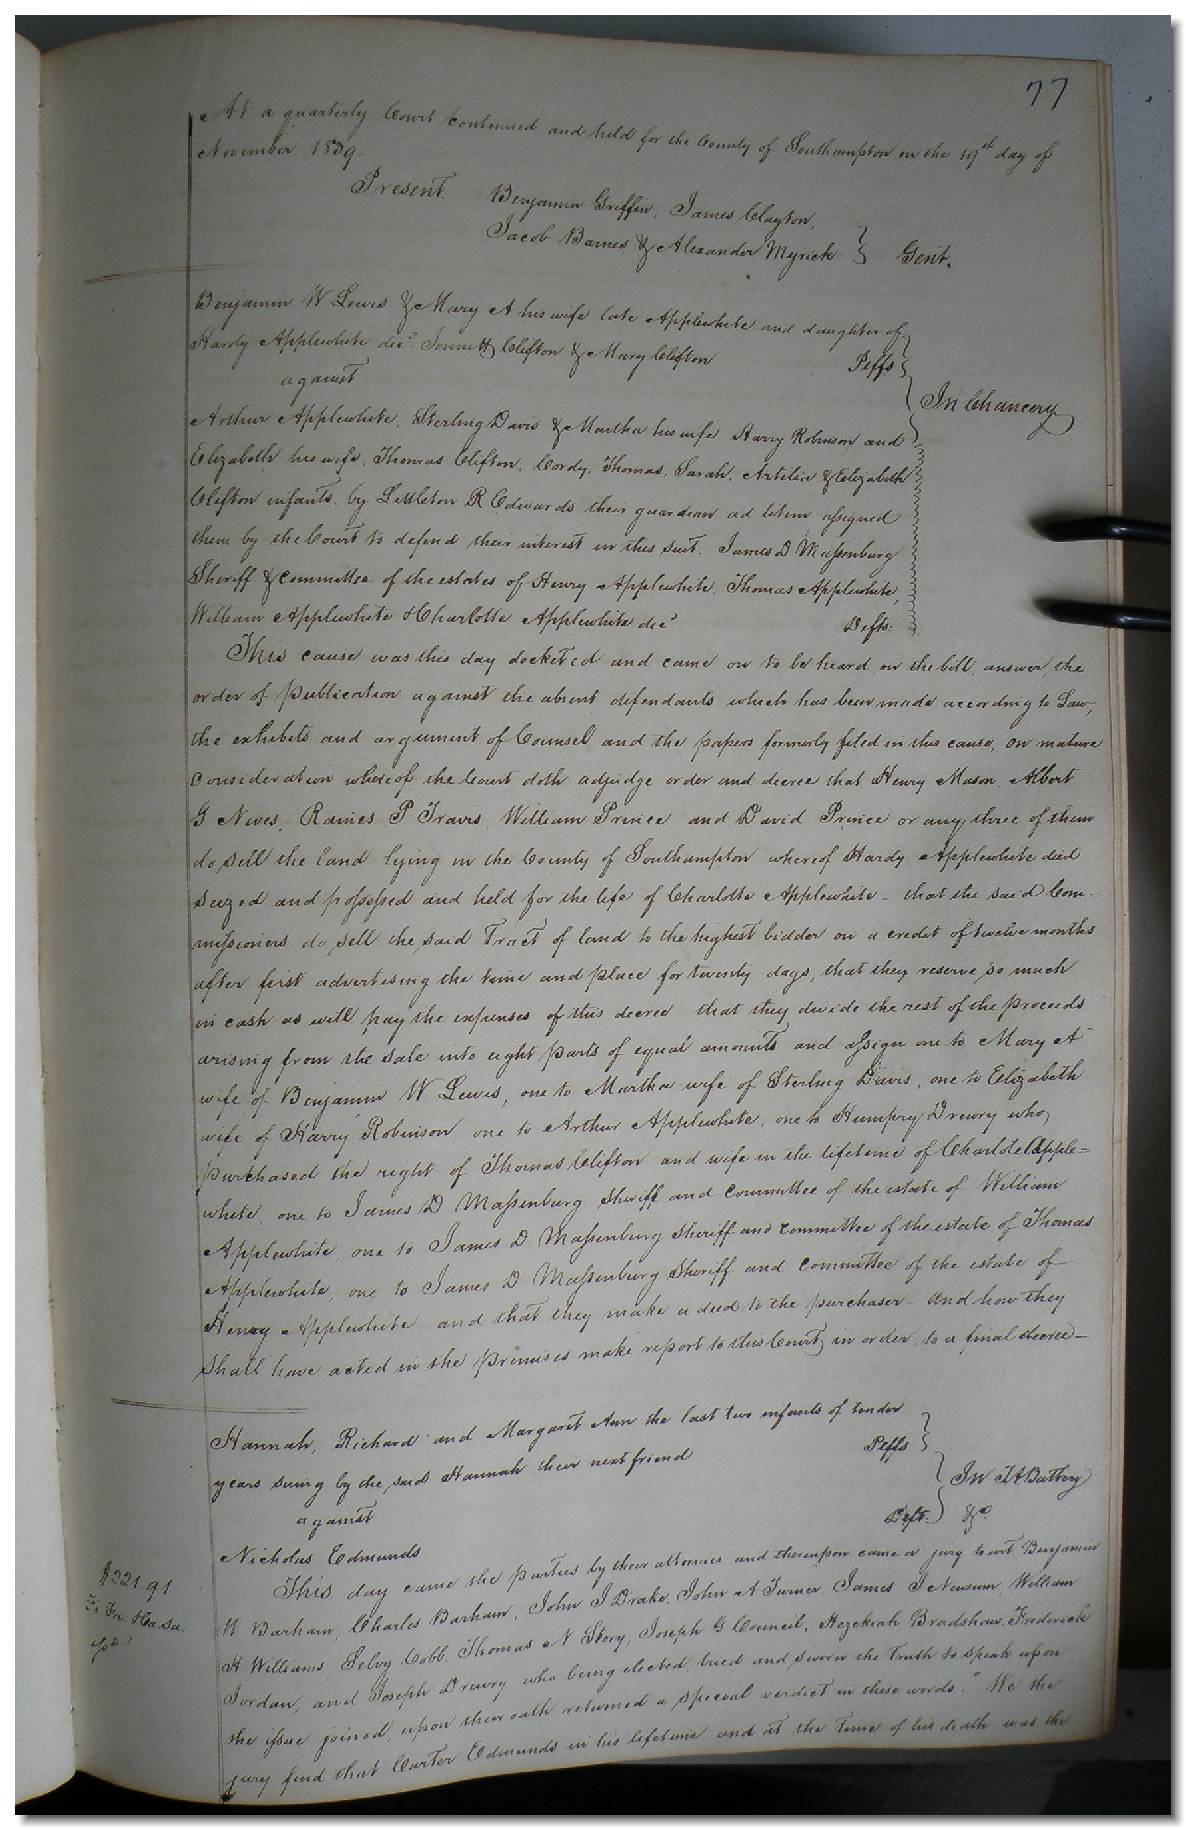 77
At a quarterly Court continued and held for the County of Southampton on the 19th day of
November 1839.
Present. Benjamin Griffin, James Clayton,
Jacob Barnes & Alexander Myrick } Gent.
Benjamin W Lewis & Mary A his wife late Applewhite and daughter of
Hardy Applewhite decd. Clifton & Mary Clifton Peffs
against
In Chancery
Arthur Applewhite, Sterling Davis & Martha his wife Harry Robinson and
Elizabeth his wife, Thomas Clifton, Cordy, Thomas, Sarah, & Elizabeth
Clifton infants by Littleton R Edwards their guardian ad litem assigned
them by the Court to defend their interest in this suit. James D Massenburg
Sheriff & Committee of the estates of Henry Applewhite, Thomas Applewhite,
William Applewhite & Charlotte Applewhite decd Defts.
This cause was this day docketed and came on to be heard on the bill, answer, the
order of publication against the absent defendants which has been made according to Law,
the exhibits and argument of Counsel and the papers formerly filed in this cause, on mature
consideration whereof the Court doth adjudge order and decree that Henry Mason, Albert
G Nives, Raines P Travis, William Prince and David Prince or any three of them
do sell the land lying in the County of Southampton whereof Hardy Applewhite died
seized and possessed and held for the life of Charlotte Applewhite - that the said Com-
missioners do sell the said Tract of land to the highest bidder on a credit of twelve months
after first advertising the time and place for twenty days, that they reserve so much
in cash as will pay the expenses of this decree that they divide the rest of the proceeds
arising from the sale into eight parts of equal amounts and assign one to Mary A
wife of Benjamin W Lewis, one to Martha wife of Sterling Davis, one to Elizabeth
wife of Harry Robinson one to Arthur Applewhite, one to Humpry Drewry who
purchased the right of Thomas Clifton and wife in the lifetime of Charlotte Apple=
white, one to James D Massenburg Sheriff and Committee of the estate of William
Applewhite, one to James D Massenburg Sheriff and Committee of the estate of Thomas
Applewhite, one to James D Massenburg Sheriff and Committee of the estate of
Henry Applewhite and that they make a deed to the purchaser - and how they
shall have acted in the premises make report to this Court, in order to a final decree -
Hannah, Richard and Margaret Ann the last two infants of tender
years suing by the said Hannah their next friend Peffs
against
In TA Battery
Deft. &c
Nicholas Edmunds
This day came the parties by their attornies and thereupon came a jury to wit Benjamin
W Barham, Charles Barham, John J Drake, John A Turner, James J Newsum, William
H Williams, Selvy Cobb, Thomas N Story, Joseph G Council, Hezekiah Bradshaw, Frederick
Jordan, and Joseph Drewry who being elected tried and sworn the truth to speak upon
the issue joined, upon their oath returned a special verdict in these words. "We the
jury find that Carter Edmunds in his lifetime and at the time of his death was the
$221.91
Fi Fa